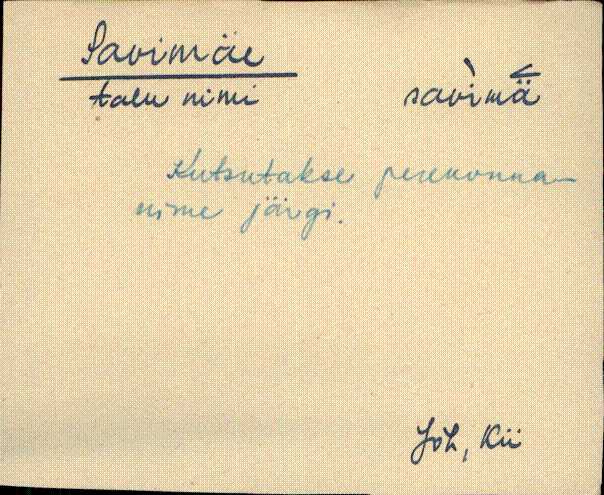 Savimäe
talu nimi savìmä<
Kutsutakse perekonna-
nime järgi.
Jõh, Kii